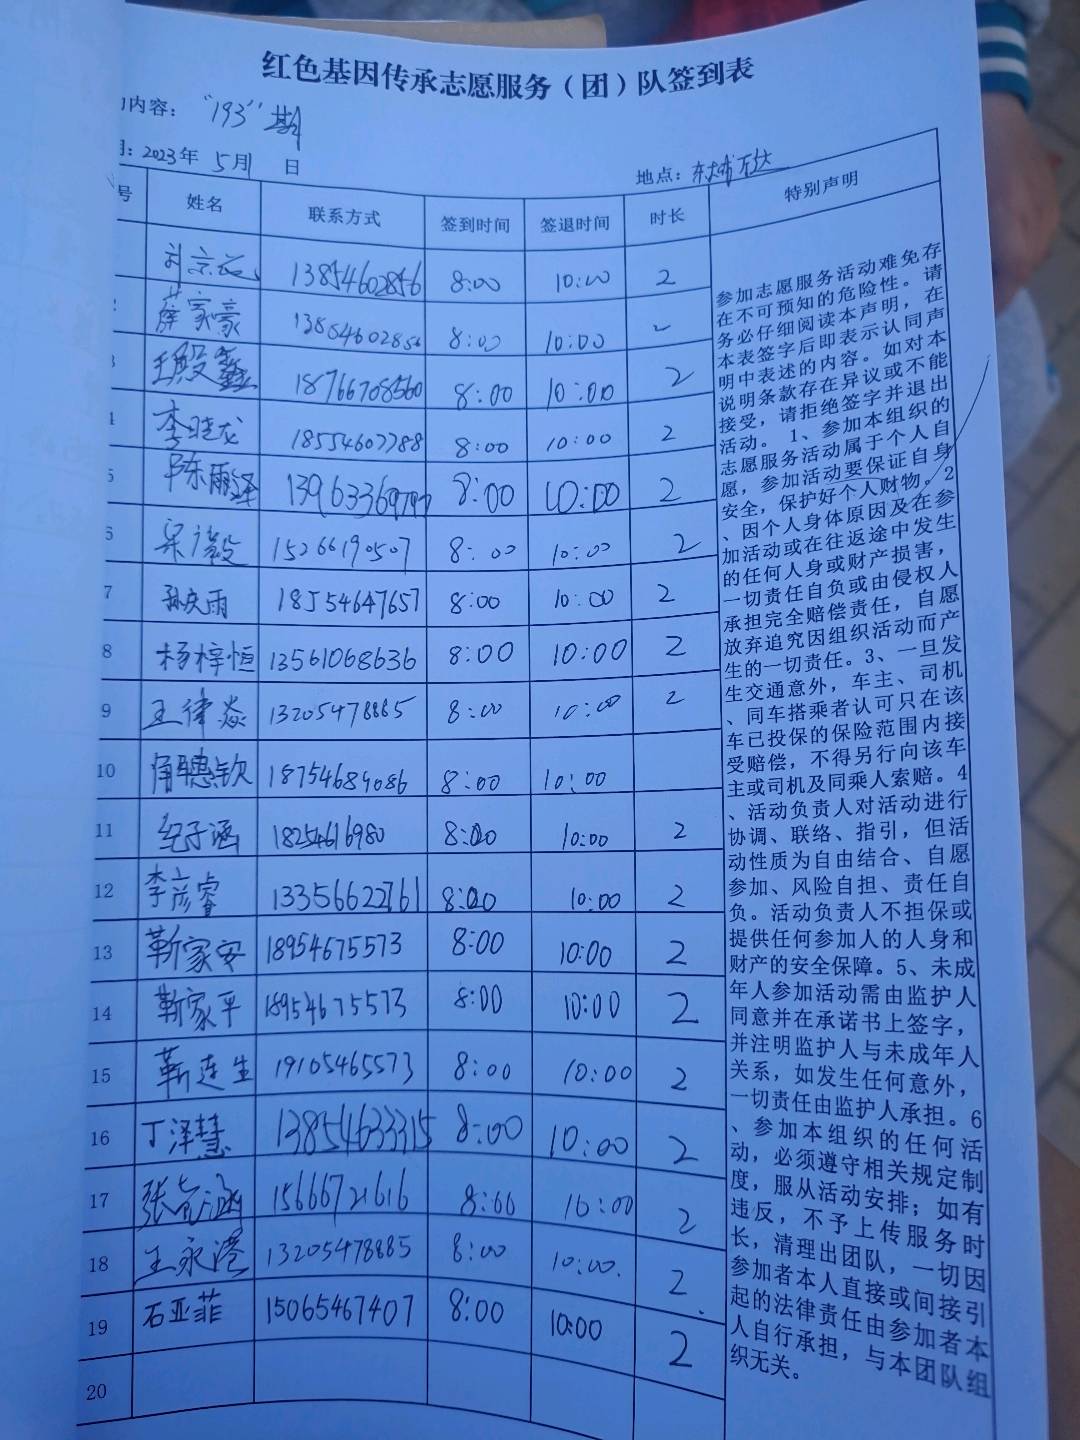 红色基因传承志愿服务（团）队签到表
内容： "193"期
：2023年 5月 日
地点：
号 姓名 联系方式 签到时间 签退时间 时长 特别声明
13854602856 8:00 10:00 2
2 薛家豪 13854602856 8:00 10:00 2
3 王殿鑫 18766708560 8:00 10:00 2
4 李晓龙 18554607788 8:00 10:00 2
5 陈雨泽 8:00 10:00 2
6 15266190507 8:00 10:00 2
7 孙庆雨 18554647657 8:00 10:00 2
8 杨梓恒 13561068636 8:00 10:00 2
9 王律焱 13205478885 8:00 10:00 2
10 18754684086 8:00 10:00
11 纪子涵 18254616980 8:00 10:00 2
12 李彦睿 13356622761 8:00 10:00 2
13 靳家安 18954675573 8:00 10:00 2
14 靳家平 18954675573 8:00 10:00 2
15 靳连生 19105465573 8:00 10:00 2
16 丁泽慧 13854633315 8:00 10:00 2
17 15666721616 8:00 10:00 2
18 王永港 13205478885 8:00 10:00. 2
19 石亚菲 15065467407 8:00 10:00 2
20
参加志愿服务活动难免存
在不可预知的危险性。请
务必仔细阅读本声明，在
本表签字后即表示认同声
明中表述的内容。如对本
说明条款存在异议或不能
接受，请拒绝签字并退出
活动。1、参加本组织的
志愿服务活动属于个人自
愿，参加活动要保证自身
安全，保护好个人财物。2
、因个人身体原因及在参
加活动或在往返途中发生
的任何人身或财产损害，
一切责任自负或由侵权人
承担完全赔偿责任，自愿
放弃追究因组织活动而产
生的一切责任。3、一旦发
生交通意外，车主、司机
、同车搭乘者认可只在该
车已投保的保险范围内接
受赔偿，不得另行向该车
主或司机及同乘人索赔。4
、活动负责人对活动进行
协调、联络、指引，但活
动性质为自由结合、自愿
参加、风险自担、责任自
负。活动负责人不担保或
提供任何参加人的人身和
财产的安全保障。5、未成
年人参加活动需由监护人
同意并在承诺书上签字，
并注明监护人与未成年人
关系，如发生任何意外，
一切责任由监护人承担。6
、参加本组织的任何活
动，必须遵守相关规定制
度，服从活动安排；如有
违反，不予上传服务时
长，清理出团队，一切因
参加者本人直接或间接引
起的法律责任由参加者本
人自行承担，与本团队组
织无关。